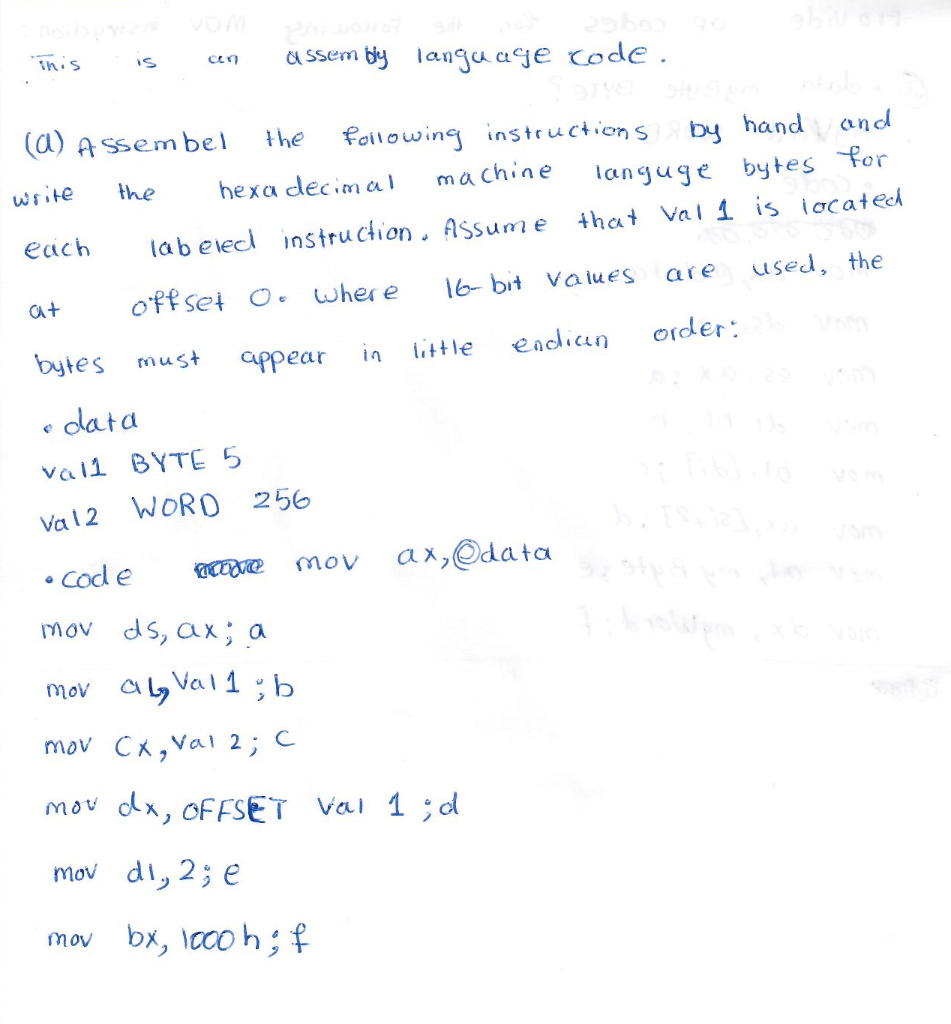 This is an assembly language code.
(a) Assembel the following instructions by hand and
write the hexadecimal machine languge bytes for
each labeled instruction. Assume that Val 1 is located
at offset 0. where 16-bit values are used, the
bytes must appear in little endian order:
.data
val1 BYTE 5
Val2 WORD 256
.code mov ax,@data
mov ds, ax; a
mov al, Val 1 ; b
mov cx, Val 2; c
mov dx, OFFSET Val 1 ; d
mov dl, 2; e
mov bx, 1000 h; f